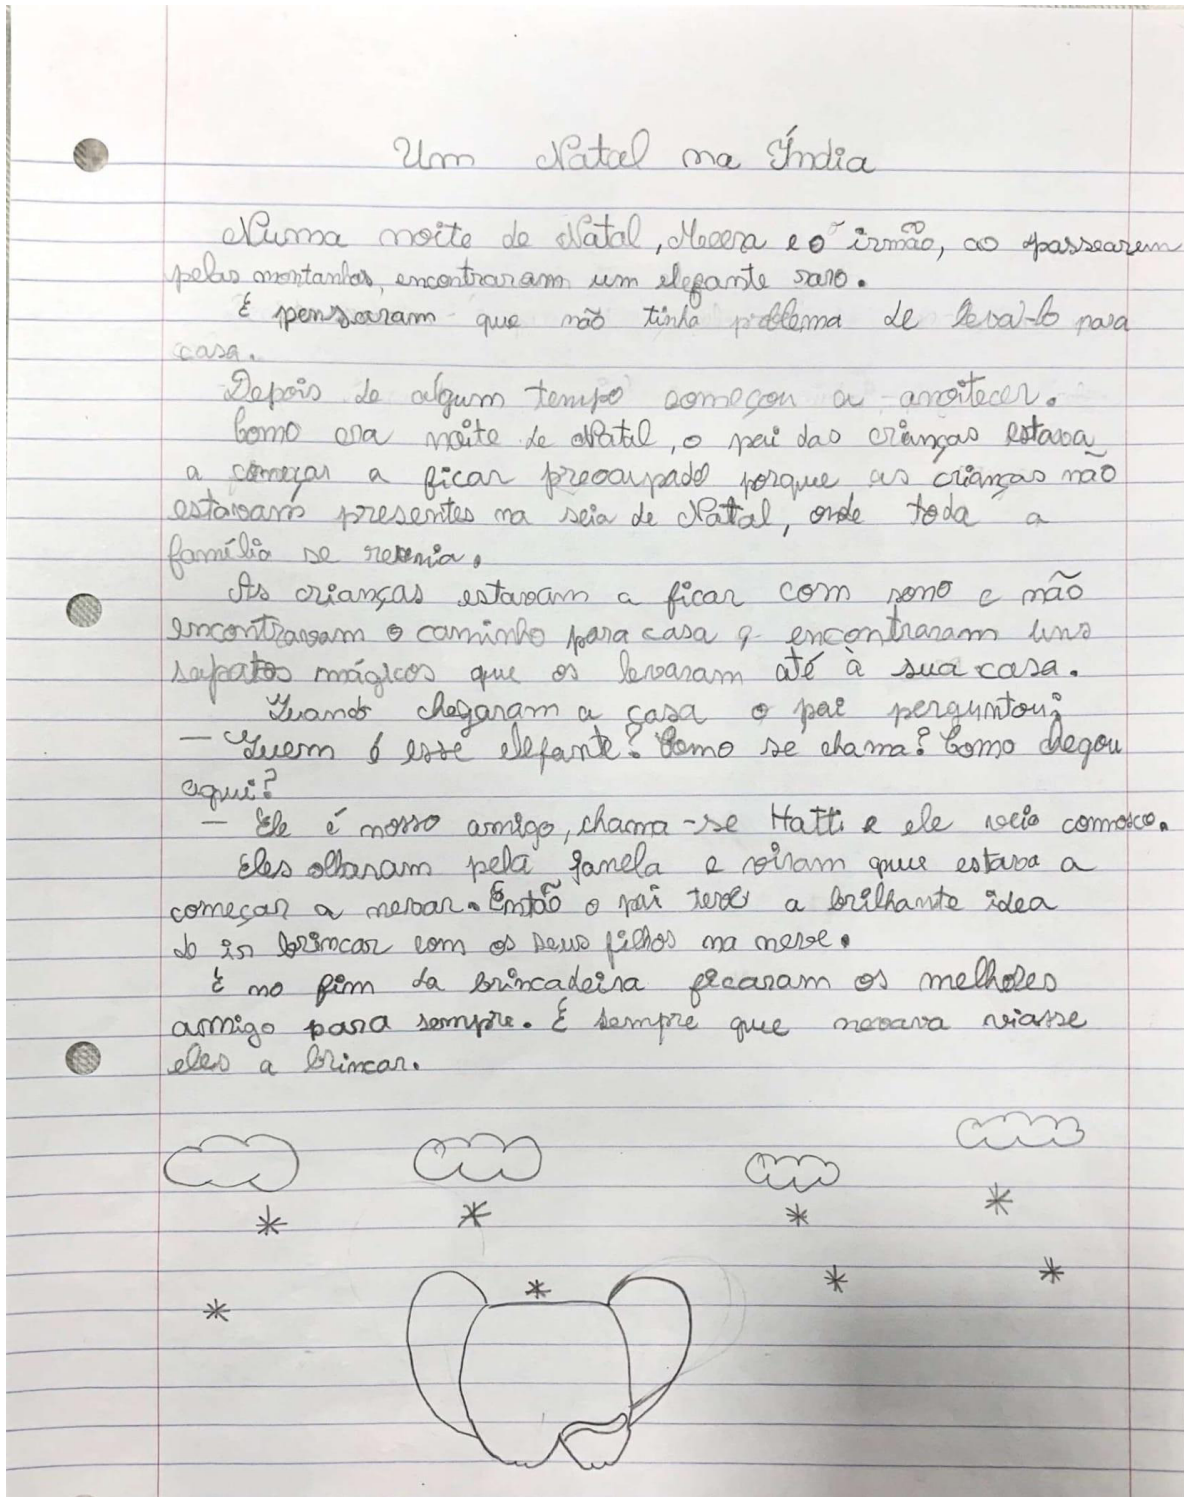 Um Natal na Índia
Numa noite de Natal, Meera e o irmão, ao passearem
pelas montanhas, encontraram um elefante raro.
E pensaram que não tinha problema de levá-lo para
casa.
Depois de algum tempo começou a anoitecer.
Como era noite de Natal, o pai das crianças estava
a começar a ficar preocupado porque as crianças não
estavam presentes na seia de Natal, onde toda a
família se reunia.
As crianças estavam a ficar com sono e não
encontravam o caminho para casa e encontraram uns
sapatos mágicos que os levaram até à sua casa.
Quando chegaram a casa o pai perguntou:
— Quem é esse elefante? Como se chama? Como chegou
aqui?
— Ele é nosso amigo, chama-se Hatti e ele veio connosco.
Eles olharam pela janela e viram que estava a
começar a nevar. Então o pai teve a brilhante idea
de ir brincar com os seus filhos na neve.
E no fim da brincadeira ficaram os melhores
amigo para sempre. E sempre que nevava viasse
eles a brincar.